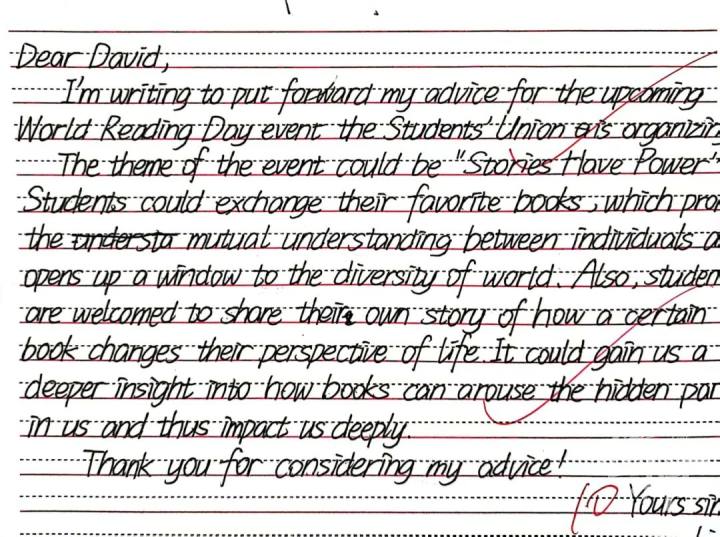 Dear David,
I'm writing to put forward my advice for the upcoming
World Reading Day event the Students' Union is
The theme of the event could be "Stories Have Power"
Students could exchange their favorite books, which
the mutual understanding between individuals
opens up a window to the diversity of world. Also,
are welcomed to share their own story of how a certain
book changes their perspective of life. It could gain us a
deeper insight into how books can arouse the hidden
in us and thus impact us deeply.
Thank you for considering my advice!
Yours